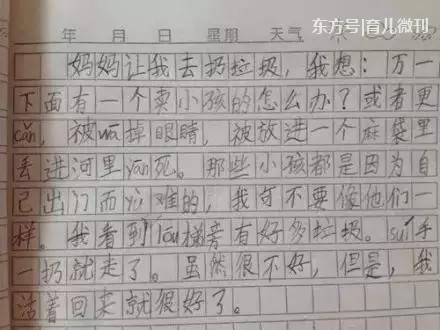 东方号|育儿微刊
年 月 日 星期 天气
妈妈让我去扔垃圾，我想：万一
下面有一个卖小孩的怎么办？或者更
cǎn，被wā掉眼睛，被放进一个麻袋里
丢进河里yān死。那些小孩都是因为自
己出门而yù难的，我可不要像他们一
样。我看到lóu梯旁有好多垃圾。suí手
一扔就走了。虽然很不好，但是，我
活着回来就很好了。